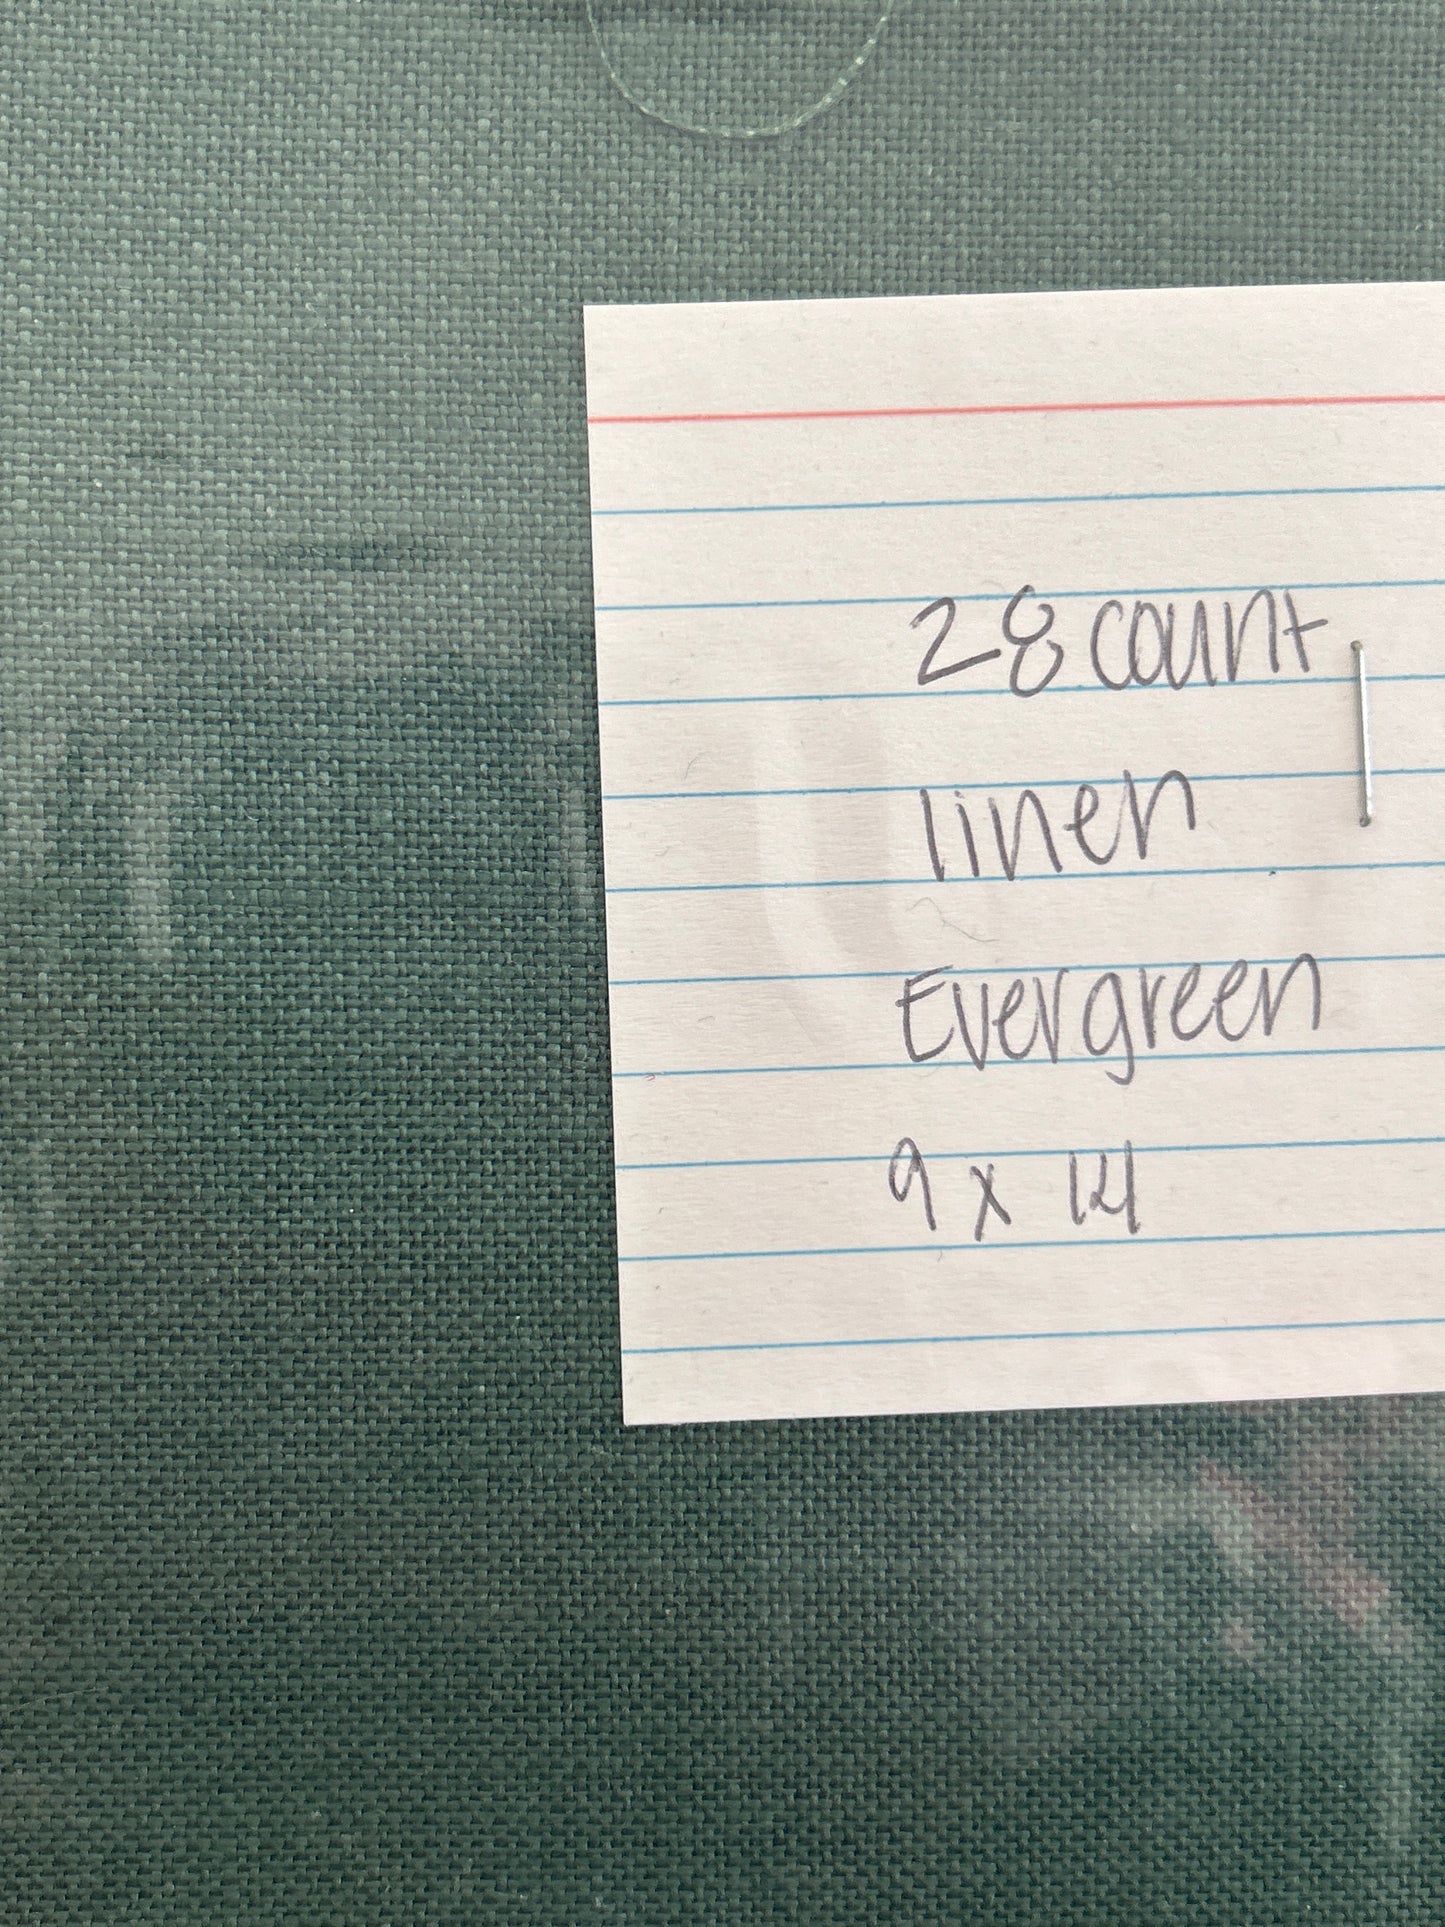 28 count
linen
Evergreen
9 x 14